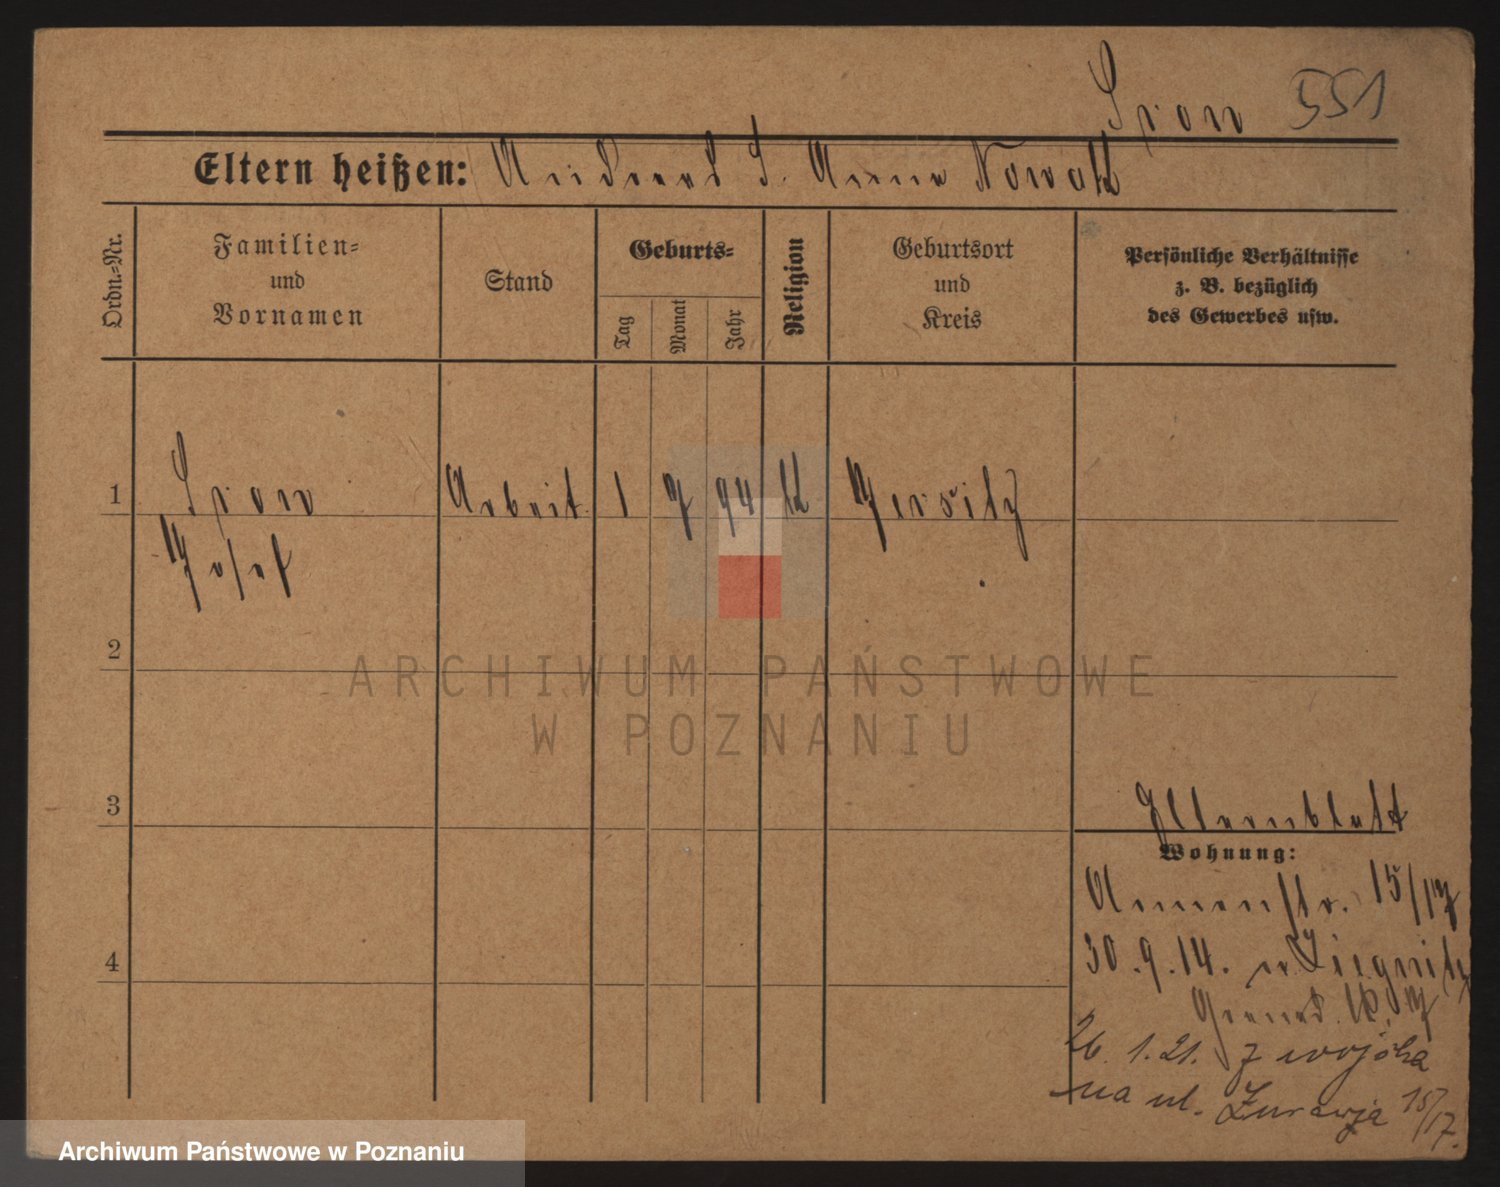 Sron 551
Eltern heißen: Andreas S. Anna Nowak
Ordn.-Nr.
Familien-
und
Vornamen
Stand
Geburts-
Tag
Monat
Jahr
Religion
Geburtsort
und
Kreis
Persönliche Verhältnisse
z. B. bezüglich
des Gewerbes usw.
1 Sron Arbeit. 1 7 94 k Jersitz
Josef
2
ARCHIWUM PAŃSTWOWE
W POZNANIU
3
Elternblatt
Wohnung:
Armenstr. 15/17
4
30.9.14. n. Liegnitz
Grenad.
26. 1. 21. z wojska
na ul. Żurawia 15/17.
Archiwum Państwowe w Poznaniu